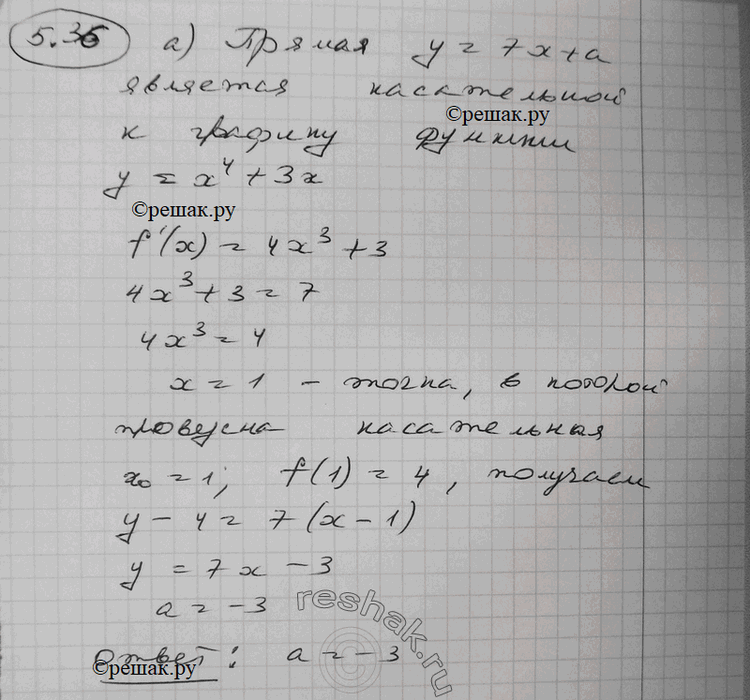 5.36 а) Прямая y = 7x + a
является касательной
©решак.ру
к графику функции
y = x⁴ + 3x
©решак.ру
f'(x) = 4x³ + 3
4x³ + 3 = 7
4x³ = 4
x = 1 - точка, в которой
проведена касательная
x₀ = 1; f(1) = 4, получаем
y - 4 = 7(x - 1)
y = 7x - 3
a = -3
reshak.ru
Ответ: a = -3
©решак.ру